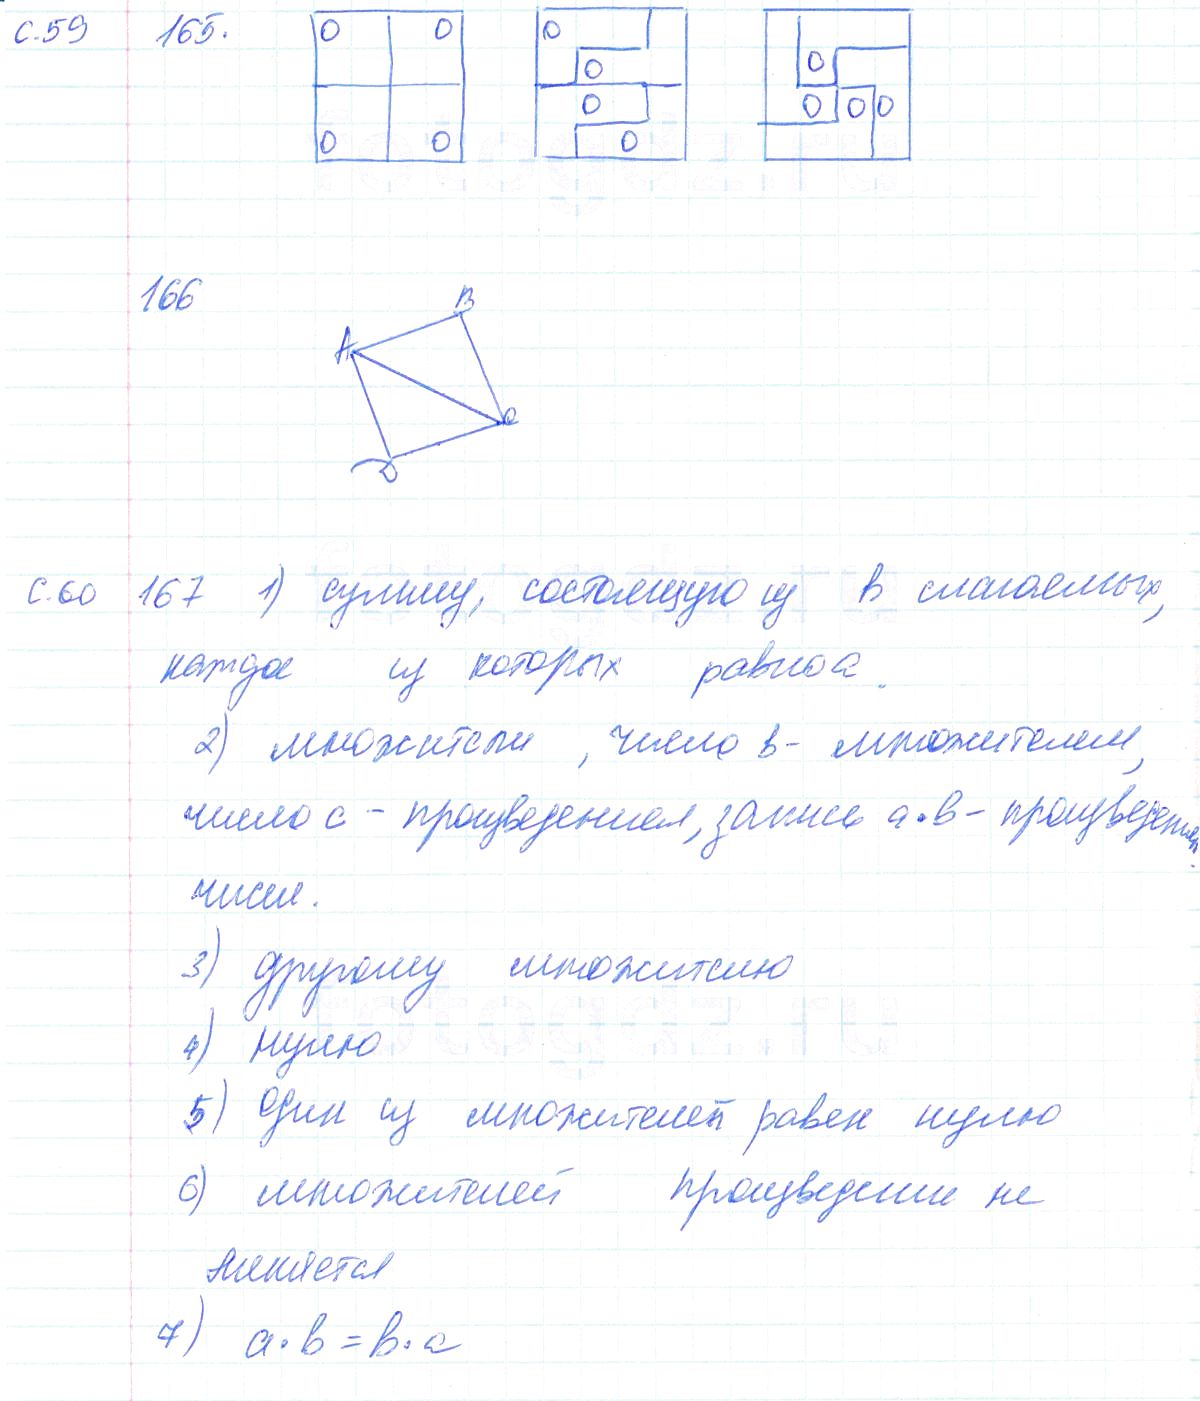 с.59 165.
0 0 0
0 0
0 0 0 0
0 0 0
166
B
A
C
D
с.60 167 1) сумму, состоящую из b слагаемых,
каждое из которых равно a.
2) множители, число b - множителем,
число c - произведением, запись a·b - произведением
чисел.
3) другому множителю
4) нулю
5) один из множителей равен нулю
6) множителей произведение не
меняется
7) a·b = b·a